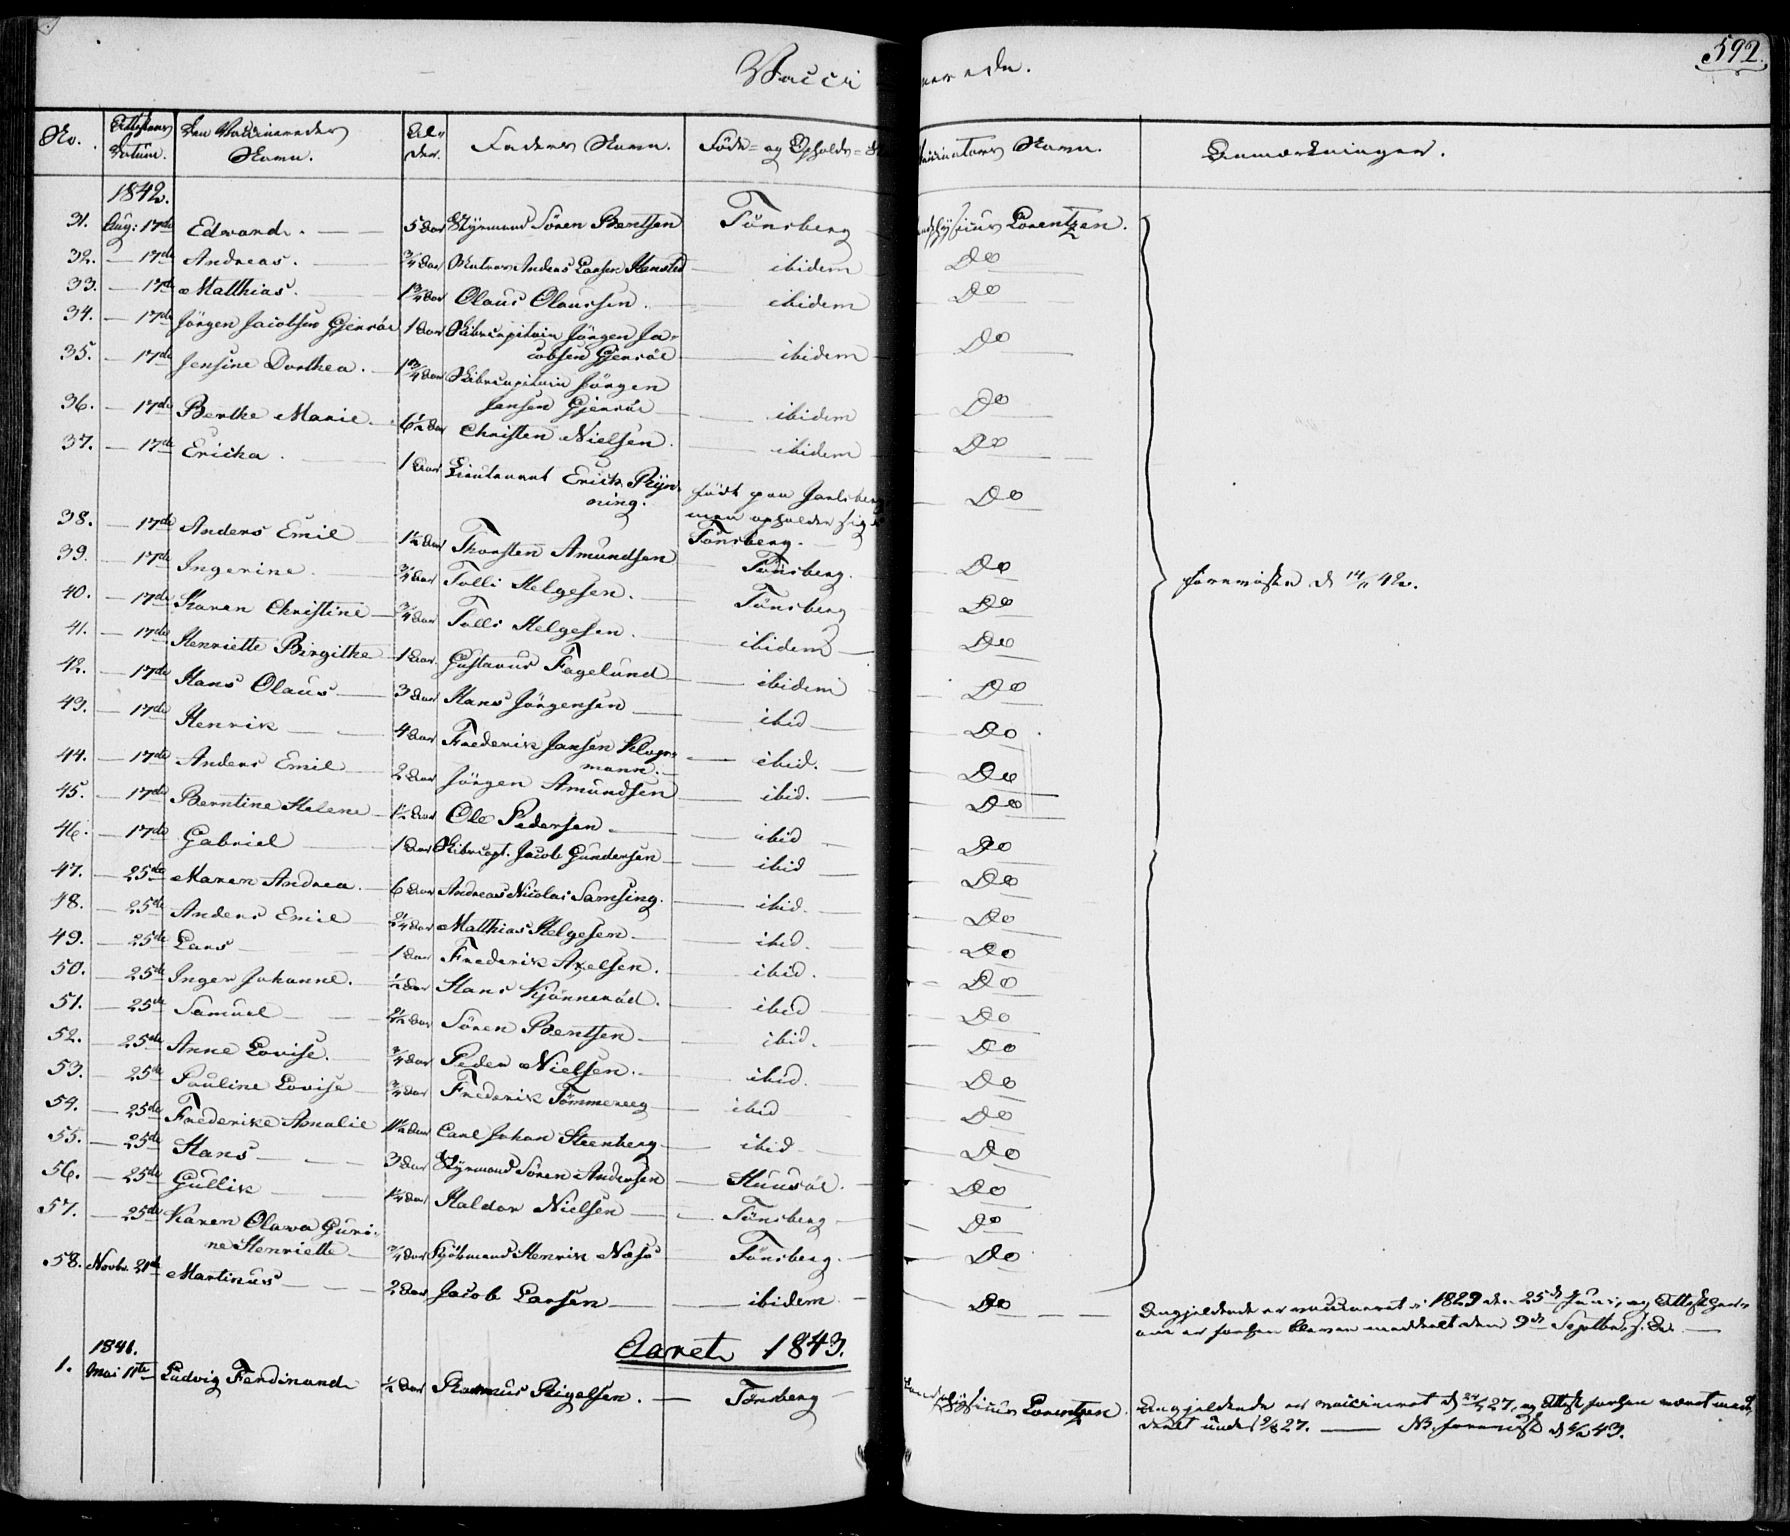 592.
Vaccinerede.
No. Attestens Datum. Den Vaccineredes Navn. Alder. Faderens Navn. Føde- og Opholds- Vaccinators Navn. Anmærkninger.
1842.
31. Aug: 17de Edvard. 5 Aar Styrmand Sören Bentsen Tönsberg Landphysicus Lorentzen.
32. 17de Andreas. 3/4 Aar Matros Anders Larsen ibidem Do
33. 17de Matthias. 1 3/4 Aar Olaus Olaussen. ibidem Do
34. 17de Jörgen Jacobsen Gjersöe 1 Aar Skibscapitain Jörgen Ja-
cobsen Gjersöe ibidem Do
35. 17de Jensine Dorthea. 1 3/4 Aar Skibscapitain Jörgen
Jansen Gjersöe ibidem Do
36. 17de Berthe Marie. 6 1/2 Aar Christen Nielsen. ibidem Do
37. 17de Ericka. 1 Aar Lieutenant Erick Ryn-
ning. født paa Jarlsberg Do
men opholder sig i
Tönsberg.
38. 17de Anders Emil 1 1/2 Aar Thorsten Amundsen Tönsberg. Do
39. 17de Ingerine. 3/4 Aar Tolli Helgesen. Tönsberg Do foreviste d 14/11 42.
40. 17de Karen Christine 3/4 Aar Tolli Helgesen. ibidem Do
41. 17de Henriette Birgithe 1 Aar. Gustavus Fagelund ibidem Do
42. 17de Hans Olaus 3 Aar Hans Jörgensen ibid Do
43. 17de Henrik 4 Aar Frederik Jansen Klop-
mann. ibid. Do
44. 17de Anders Emil 2 Aar Jörgen Amundsen ibid. Do
45. 17de Berntine Helene 1 1/2 Aar Ole Pedersen ibid Do
46. 17de Gabriel 1 Aar Skibscapt. Jacob Gundersen ibid Do
47. 25de Maren Andrea. 6 Aar Andreas Nicolai Samsing. ibid. Do
48. 25de Anders Emil Aar Matthias Helgesen ibid. Do
49. 25de Lars 1 Aar Frederik Axelsen. ibid. Do
50. 25de Inger Johanne. 1/2 Aar Hans Kjönneröd. ibid Do
51. 25de Samuel Aar Sören Bentsen ibid. Do
52. 25de Anne Lovise. 3/4 Aar Peder Nielsen. ibid. Do
53. 25de Pauline Lovise 3/4 Aar Frederik Tömmereeg ibid Do
54. 25de Frederike Amalie 1 1/2 Aar Carl Johan Steenberg ibid Do
55. 25de Hans 3 Aar Styrmand Sören Andersen Huusöe. Do
56. 25de Gullik 1 1/4 Aar Haldor Nielsen Tönsberg Do
57. 25de Karen Olava Guri-
ne Henriette 3/4 Aar Kjöbmand Henrik Næss Tönsberg. Do
58. Novbr. 21de Martinus 2 Aar Jacob Larsen ibidem Do Angjeldende er vaccineret i 1829 den 25de Juni, og Attest her-
om er forhen bleven meddeelt den 9de Septbr. s. A.
Aaret 1843.
1841.
1. Mai 11te Ludvig Ferdinand 1/2 Aar Rasmus Rigelsen. Tönsberg Landphysicus Lorentzen. Angjeldende er vaccineret d 27, og Attest forhen været med-
deelt under 27. NB. forevist d 43.